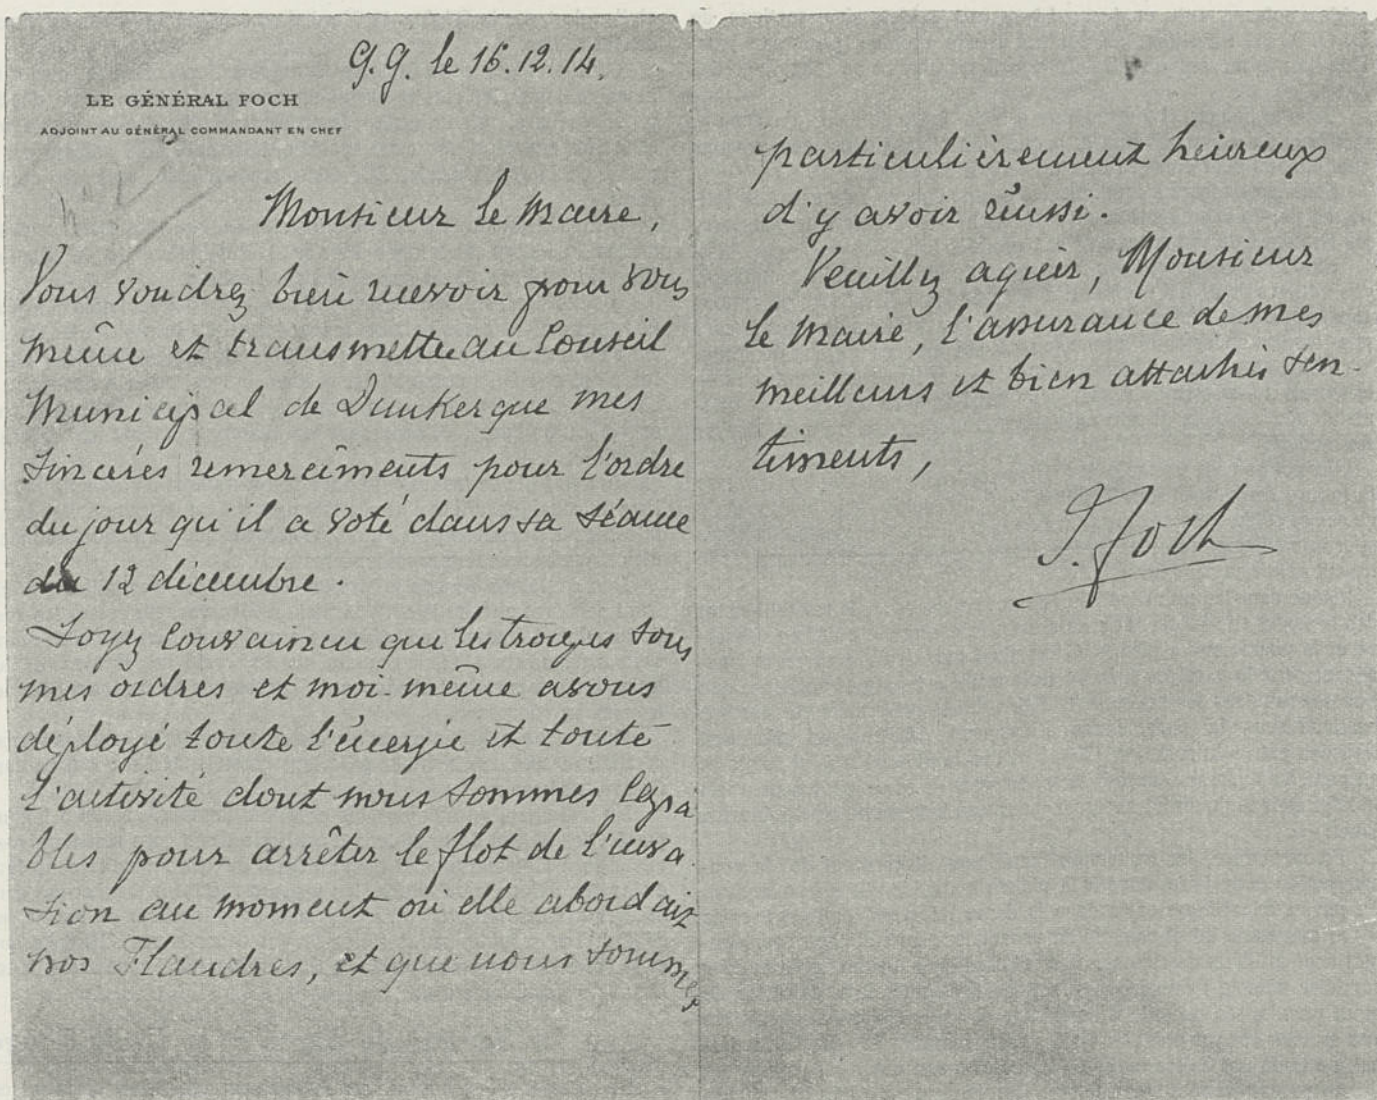 G.G. le 16.12.14.
LE GÉNÉRAL FOCH
ADJOINT AU GÉNÉRAL COMMANDANT EN CHEF
Monsieur le Maire,
Vous voudrez bien recevoir pour vous
même et transmettre au Conseil
Municipal de Dunkerque mes
sincères remercîments pour l'ordre
du jour qu'il a voté dans sa séance
du 12 décembre.
Soyez convaincu que les troupes sous
mes ordres et moi-même avons
déployé toute l'énergie et toute
l'activité dont nous sommes capa
bles pour arrêter le flot de l'inva
sion au moment où elle abordait
nos Flandres, et que nous sommes
particulièrement heureux
d'y avoir réussi.
Veuillez agréer, Monsieur
le Maire, l'assurance de mes
meilleurs et bien attachés sen-
timents,
F. Foch